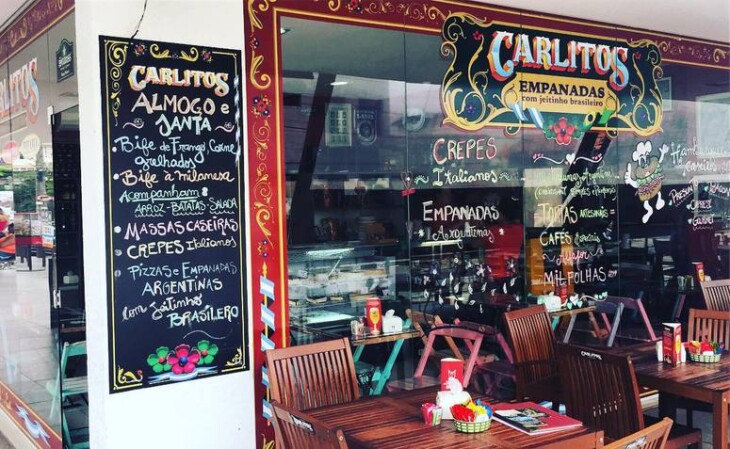 CARLITOS
ALMOÇO e
JANTA
Bife de Frango, Carne
grelhados
Bife à milanesa
Acompanham
ARROZ - BATATAS - SALADA
MASSAS CASEIRAS
CREPES ITALIANOS
PIZZAS e EMPANADAS
ARGENTINAS
com Jeitinho
BRASILERO
CARLITOS
EMPANADAS
com jeitinho brasileiro
CREPES
Italianos
EMPANADAS
Argentinas
TORTAS ARTESANAIS
CAFÉS
MIL FOLHAS